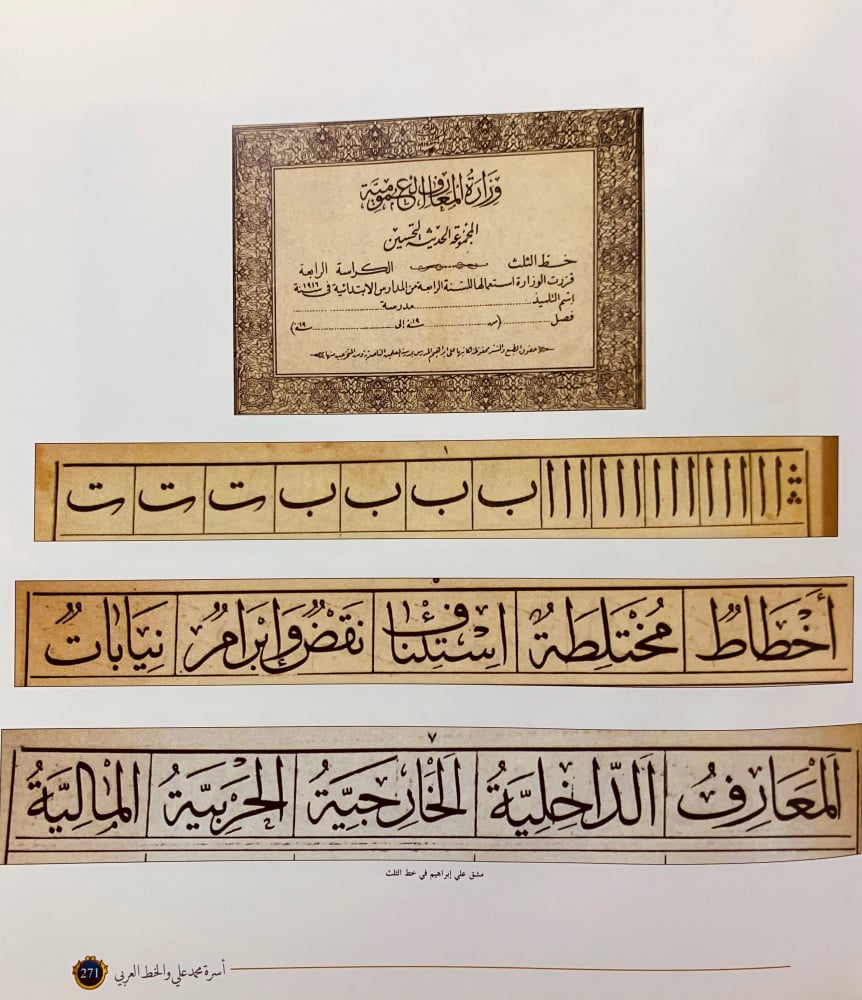 وزارة المعارف العمومية
المجموعة الحديثة لتحسين
خط الثلث الكراسة الرابعة
قررت الوزارة استعمالها للسنة الرابعة من المدارس الابتدائية فى سنة ١٩١٦
اسم التلميذ مدرسة
فصل (من سنة ١٩ إلى سنة ١٩)
حقوق الطبع والنشر محفوظة لكاتبها على ابراهيم المدرس بمدرسة المعلمين الناصرية
١
ا ا ا ا ا ا ا ا ا ا ا ا ا ا ب ب ب ب ت ت ت
٥
أخطاط مختلطة استئناف نقض وإبرام نيابات
٧
المعارف الداخلية الخارجية الحربية المالية
مشق علي إبراهيم في خط الثلث
أسرة محمد علي والخط العربي 271